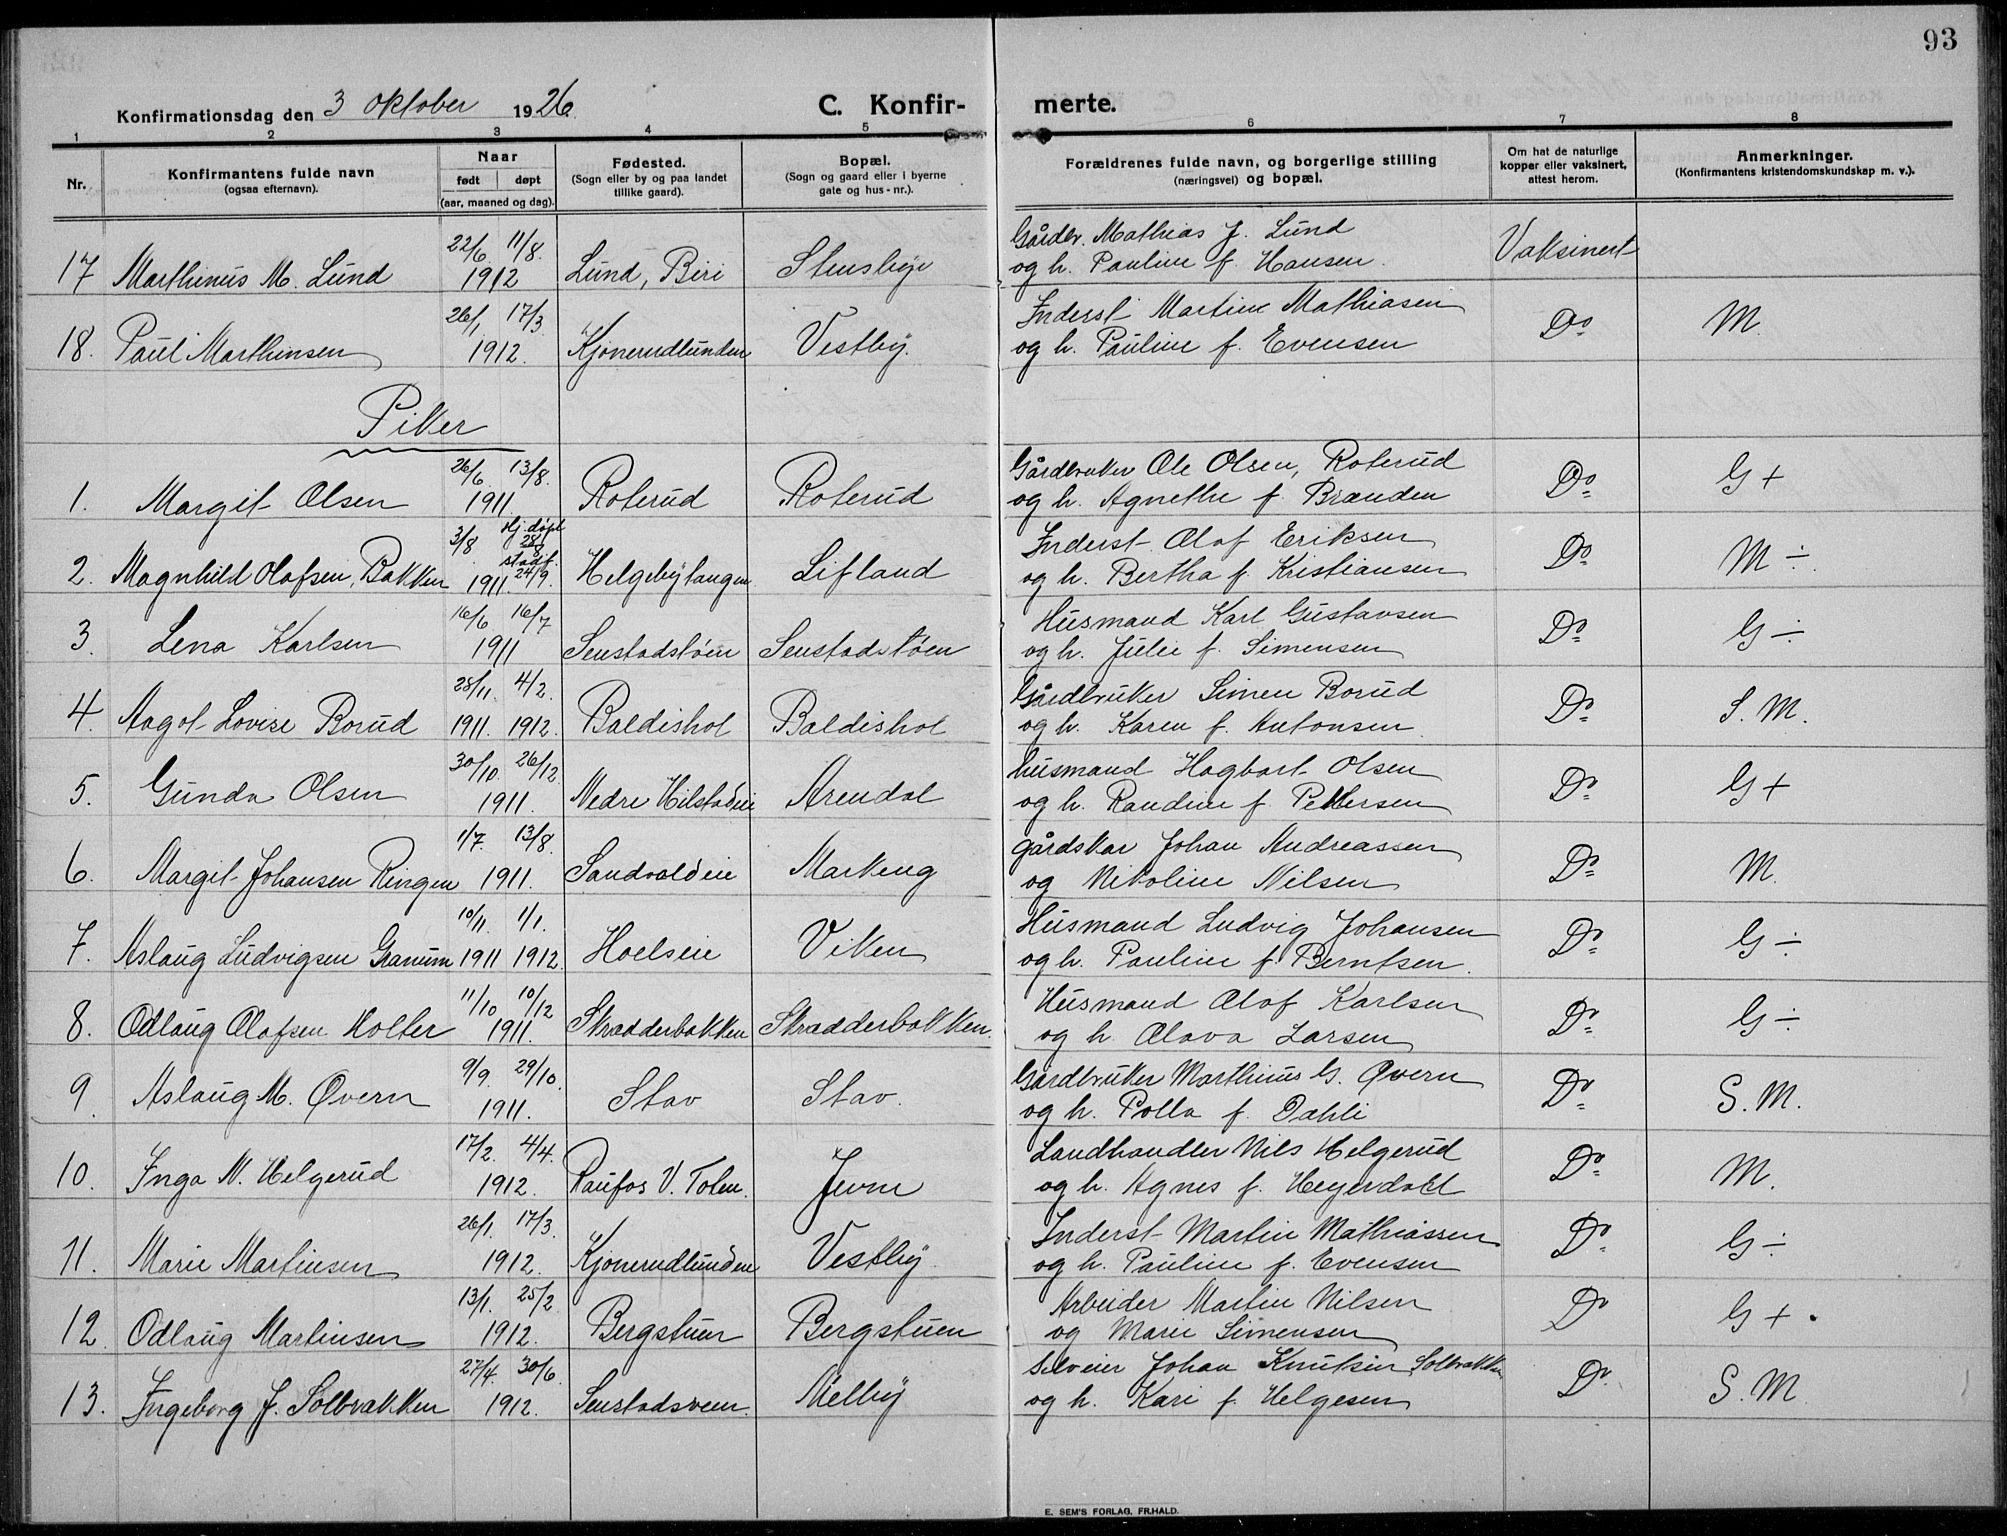 93
Konfirmationsdag den 3 oktober 1926.
C. Konfir- merte.
1 2 3 4 5 6 7 8
Nr.
Konfirmantens fulde navn
(ogsaa efternavn).
Naar
født døpt
(aar, maaned og dag).
Fødested.
(Sogn eller by og paa landet
tillike gaard).
Bopæl.
(Sogn og gaard eller i byerne
gate og hus-nr.).
Forældrenes fulde navn, og borgerlige stilling
(næringsvei) og bopæl.
Om hat de naturlige
kopper eller vaksinert,
attest herom.
Anmerkninger.
(Konfirmantens kristendomskundskap m. v.).
22/6. 11/8. Gårdbr. Mathias J. Lund
17 Marthinus M. Lund 1912 Lund, Biri Stensbye og h. Pauline f. Hansen. Vaksinert
26/1. 17/3 Inderst Martin Mathiasen
18. Paul Marthinsen 1912. Kjonerudlunden Vestby. og h. Pauline f. Evensen Do M.
Piker
26/6. 13/8. Gårdbruker Ole Olsen, Roterud
1. Margit Olsen 1911. Roterud Roterud og h. Agnethe f. Brænden Do G +
3/8 hj. døpt 28/8 stadf. Inderst Olaf Eriksen
2. Magnhild Olafsen, Bakken 1911. 24/9. Helgebytangen Lifland og h. Bertha f. Kristiansen Do M ÷.
16/6 16/7 Husmand Karl Gustavsen
3. Lena Karlsen 1911 Senstadstøen Senstadstøen og h. Julie f. Simensen Do G ÷
28/11. 4/2. Gårdbruker Simen Borud
4. Aagot Lovise Borud 1911. 1912. Baldishol Baldishol og h. Karen f. Antonsen. Do S. M.
30/10. 26/12. husmand Hagbart Olsen
5. Gunda Olsen 1911. Nedre Hilstadeie Arendal og h. Randine f. Pettersen Do G +
1/7. 13/8. gårdskar Johan Andreassen
6. Margit Johansen Ringen 1911. Sandvoldeie Markeng og Nikoline Nilsen Do M.
10/11. 1/1. Husmand Ludvig Johansen
7. Aslaug Ludvigsen Granum 1911 1912. Hoelseie Viken og h. Pauline f. Berntsen. Do G ÷
11/10 10/12 Husmand Olaf Karlsen
8. Odlaug Olafsen Holter 1911. Skrædderbakken Skrædderbakken. og h. Olava Larsen Do G ÷
9/9. 29/10. Gardbruker Marthinus G. Øvern
9. Aslaug M. Øvern 1911. Stav Stav. og h. Polla f. Dahli Do S. M.
17/2. 4/4. Landhandler Nils Helgerud
10. Inga N. Helgerud 1912. Raufos V. Toten. Jevne og h. Agnes f. Heyerdahl Do M.
26/1. 17/3. Inderst Martin Mathiassen
11. Marie Martinsen 1912. Kjonerudlunden Vestby og h. Pauline f. Evensen Do G ÷
13/1. 25/2. Arbeider Martin Nilsen
12. Odlaug Martinsen 1912. Bergstuen Bergstuen og Marie Simensen Do G + .
27/4. 30/6. Selveier Johan Knutsen Solbrakken
13. Ingeborg J. Solbrakken 1912. Senstadsveen. Melby og h. Kari f. Helgesen Do S. M
E. SEM'S FORLAG, FR.HALD.